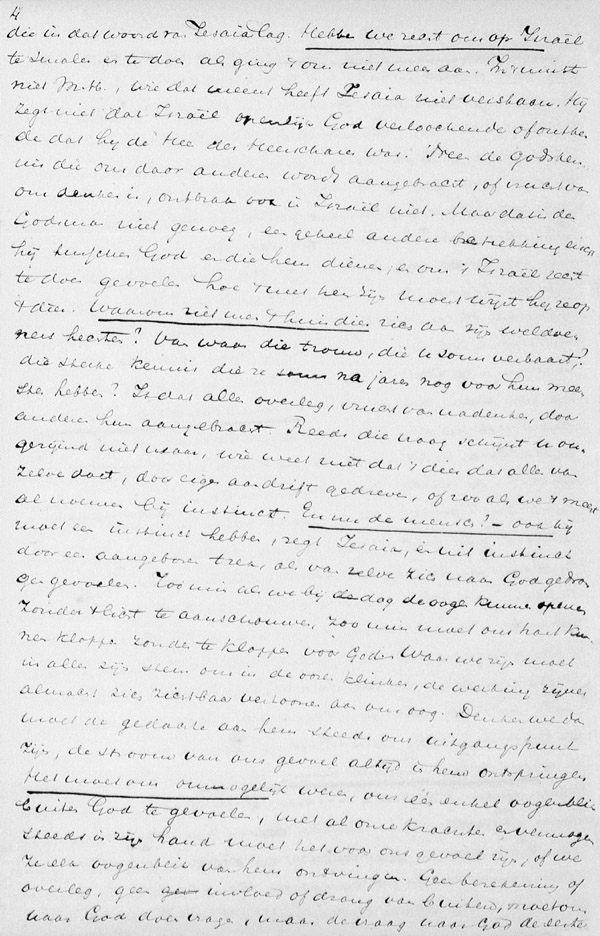 4
die in dat woord van Jesaia lag. Hebben we recht om op Israël
te smalen en te doen als ging 't om niet meer aan. In 't minst
niet M.H., wie dat meent heeft Jesaia niet verstaan. Hij
zegt niet dat Israël openlijk God verloochende of ontken
de dat hij de Heer der Heerscharen was. Neen de Godsken
nis die ons door anderen wordt aangebracht, of vrucht van
ons denken is, ontbrak ook in Israël niet. Maar dat is den
Godsman niet genoeg, een geheel andere betrekking eischt
hij tusschen God en die hem dienen, en om 't Israël recht
te doen gevoelen hoe 't met hen zijn moest wijst hij ze op
't dier. Waarom niet mee 't huisdier zich aan zijn weldoe
ners hechten? Van waar die trouw, die u soms verbaast?
die sterke kennis die ze na jaren nog voor hun mees
ter hebben? Is dat alles overleg, vrucht van nadenken, door
anderen hun aangebracht. Reeds die vraag schijnt u on
gerijmd niet waar, wie weet niet dat 't dier dat alles van
zelve doet, door eigen aandrift gedreven, of zoo als we 't meest
al noemen bij instinct. En nu de mensch? – ook hij
moet een instinct hebben, zegt Jesaia, en uit instinct
door een aangeboren trek, als van zelve zich naar God gedron
gen gevoelen. Zoo min als we bij de dag de oogen kunnen openen
zonder 't licht te aanschouwen, zoo min moet ons hart kun
nen kloppen zonder te kloppen voor God. Waar we zijn moet
in alles zijn stem ons in de ooren klinken, de werking zijner
almacht zich zichtbaar vertoonen aan ons oog. Denken we dan
moet de gedachte aan hem steeds ons uitgangspunt
zijn, de stroom van ons gevoel altijd in hem ontspringen
Het moet ons onmogelijk wezen, ons één enkel oogenblik
buiten God te gevoelen, met al onze krachten en vermogen
steeds in zijn hand moet het voor ons gevoel zijn, of we
ieder oogenblik van hem ontvingen. Geen berekening of
overleg, geen invloed of drang van buiten, moet ons
naar God doen vragen, maar de vraag naar God de eerste